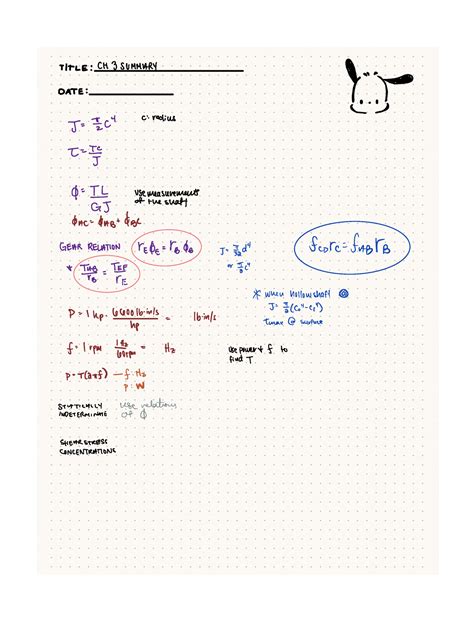 TITLE: CH 3 SUMMARY
DATE:
J = π/2 C⁴ c: radius
τ = Tc/J
ϕ = TL/GJ use measurements of the shaft
ϕAC = ϕAB + ϕBC
GEAR RELATION rEϕE = rBϕB
* TAB/rB = TEF/rE
J = π/32 d⁴
or π/2 c⁴
fCD rC = fAB rB
* when hollow shaft
J = π/2 (Co⁴ - Ci⁴)
τmax @ surface
P = 1 hp · 6600 lb·in/s / hp = lb·in/s
f = 1 rpm 1 Hz / 60 rpm = Hz
use power & f to
find T
P = T(2πf) — f: Hz
P: W
STATICALLY INDETERMINATE use relations of ϕ
SHEAR STRESS
CONCENTRATIONS